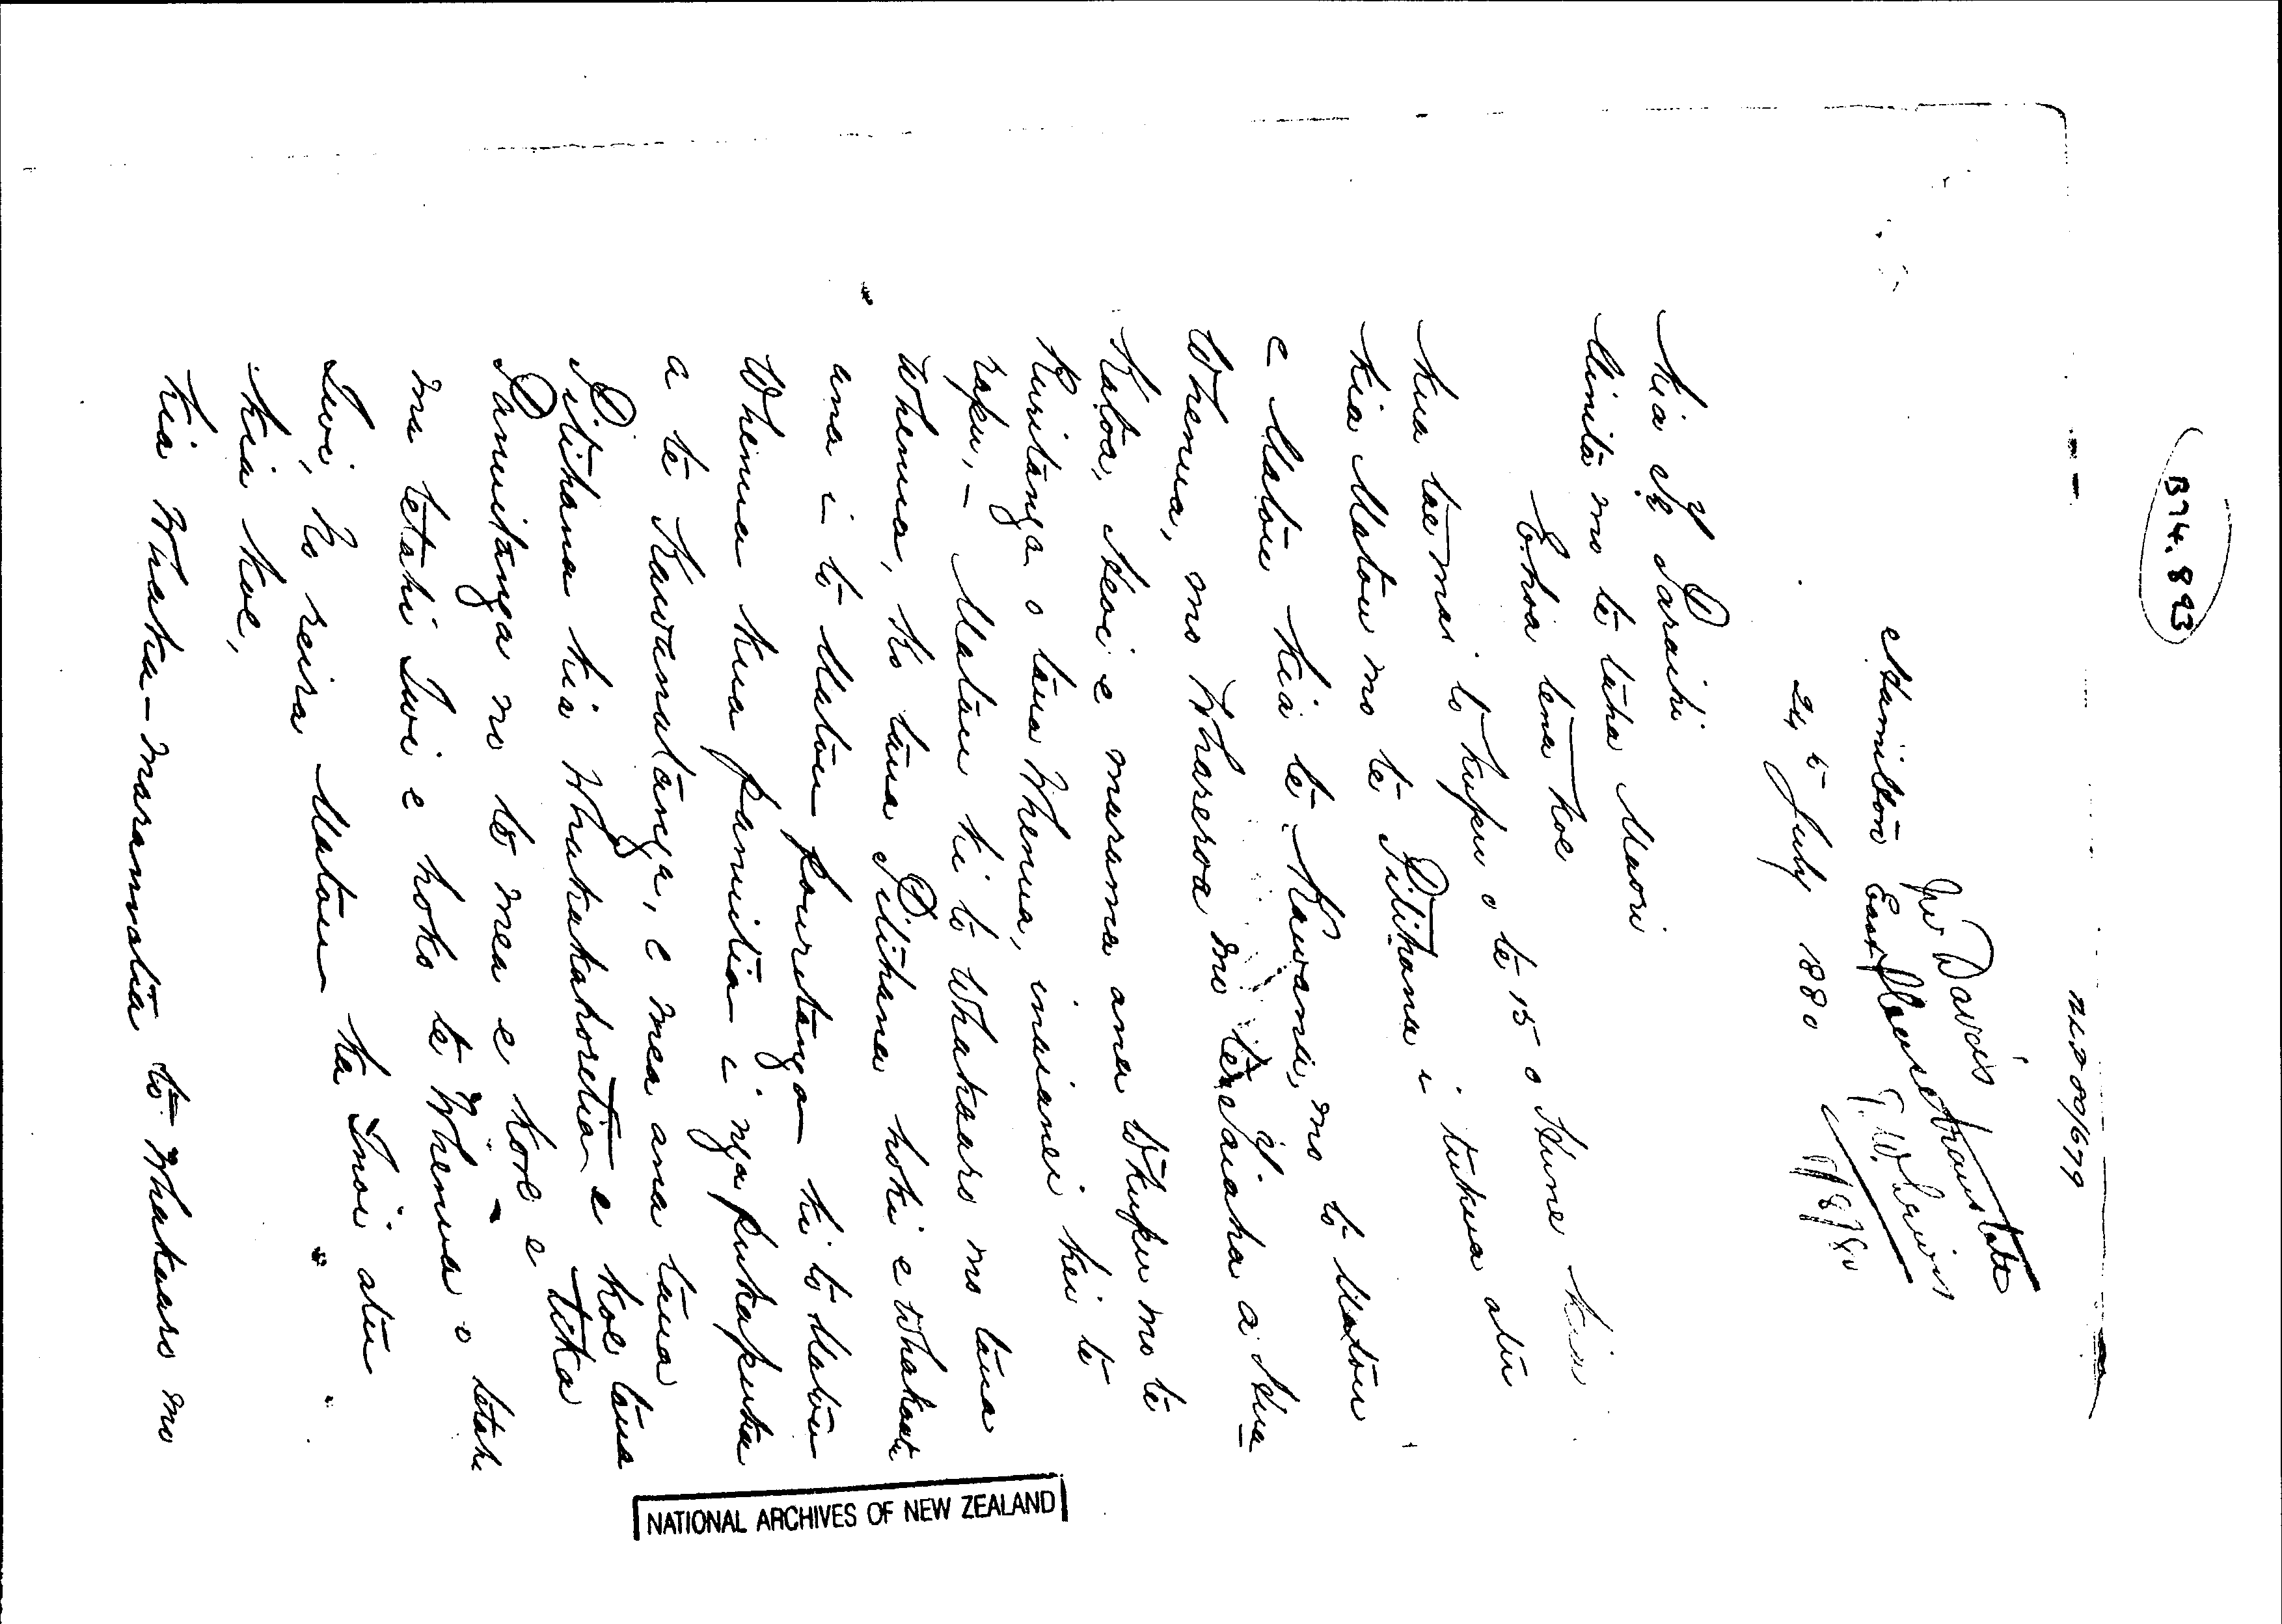 B74.893
NLP 80/679
Mr Davis
Please translate
T. W. Lewis
9/8/80
Hamilton East
24th July 1880
Kia Te Paraihi
Minita mo te taha Maori
E hoa tena koe
Kua tae mai to kupu o te 15 o Hune kia
kia Matou mo te Pitihana i tukua atu
e Matou kia te Kawana, mo to Matou
Whenua, mo Whareroa mo te Taiaha a Hua
Katoa, Heoi e marama ana to kupu mo te
Kuritanga o taua Whenua, inaianei kei te
rapu, - Matau ki to Whakaaro mo taua
Whenua, ko taua Pitihana hoki e Whakaatu
ana i to Matou pouritanga ki to Matou
Whenua kua pamuitia i nga pukapuka
a te Kawanatanga, e mea ana taua
Pitihana kia Whakakahoretia e koe taua
Panuitanga no te mea e kore e tika
ma tetahi Iwi e hoko te Whenua o tetahi
Iwi, ko reira Matou ka Inoi atu
kia koe,
Kia Whaka-maramatia to Whakaaro mo
NATIONAL ARCHIVES OF NEW ZEALAND